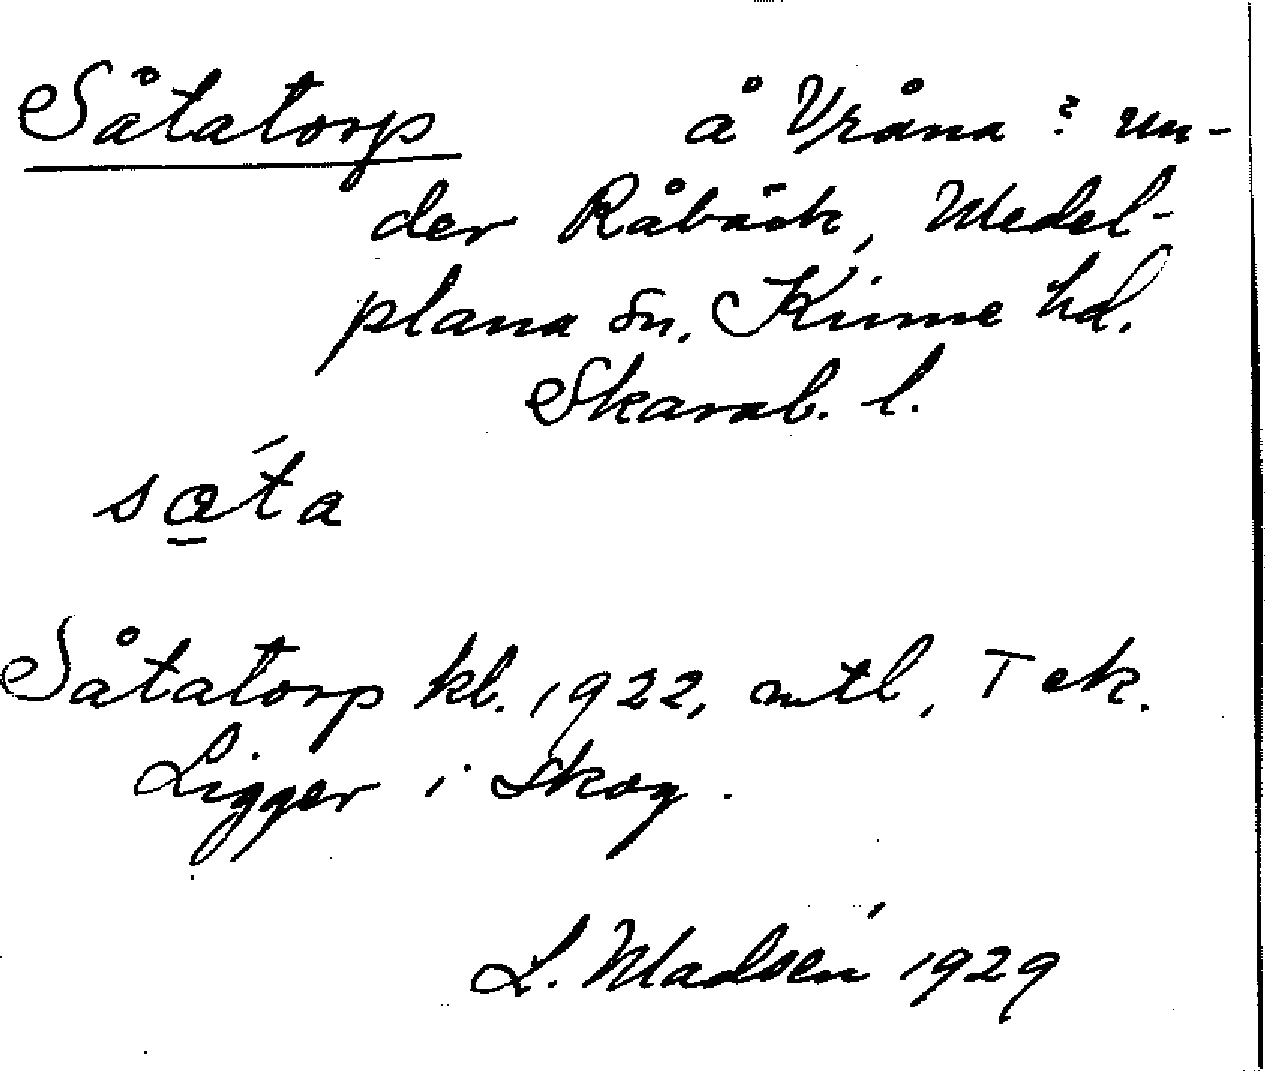 Såtatorp å Vråna ? un-
der Råbäck, Medel-
plana sn. Kinne hd.
Skarab. l.
sa̲´ta
Såtatorp kb. 1922, mtl, T ek.
Ligger i Skog.
L. Madsén 1929